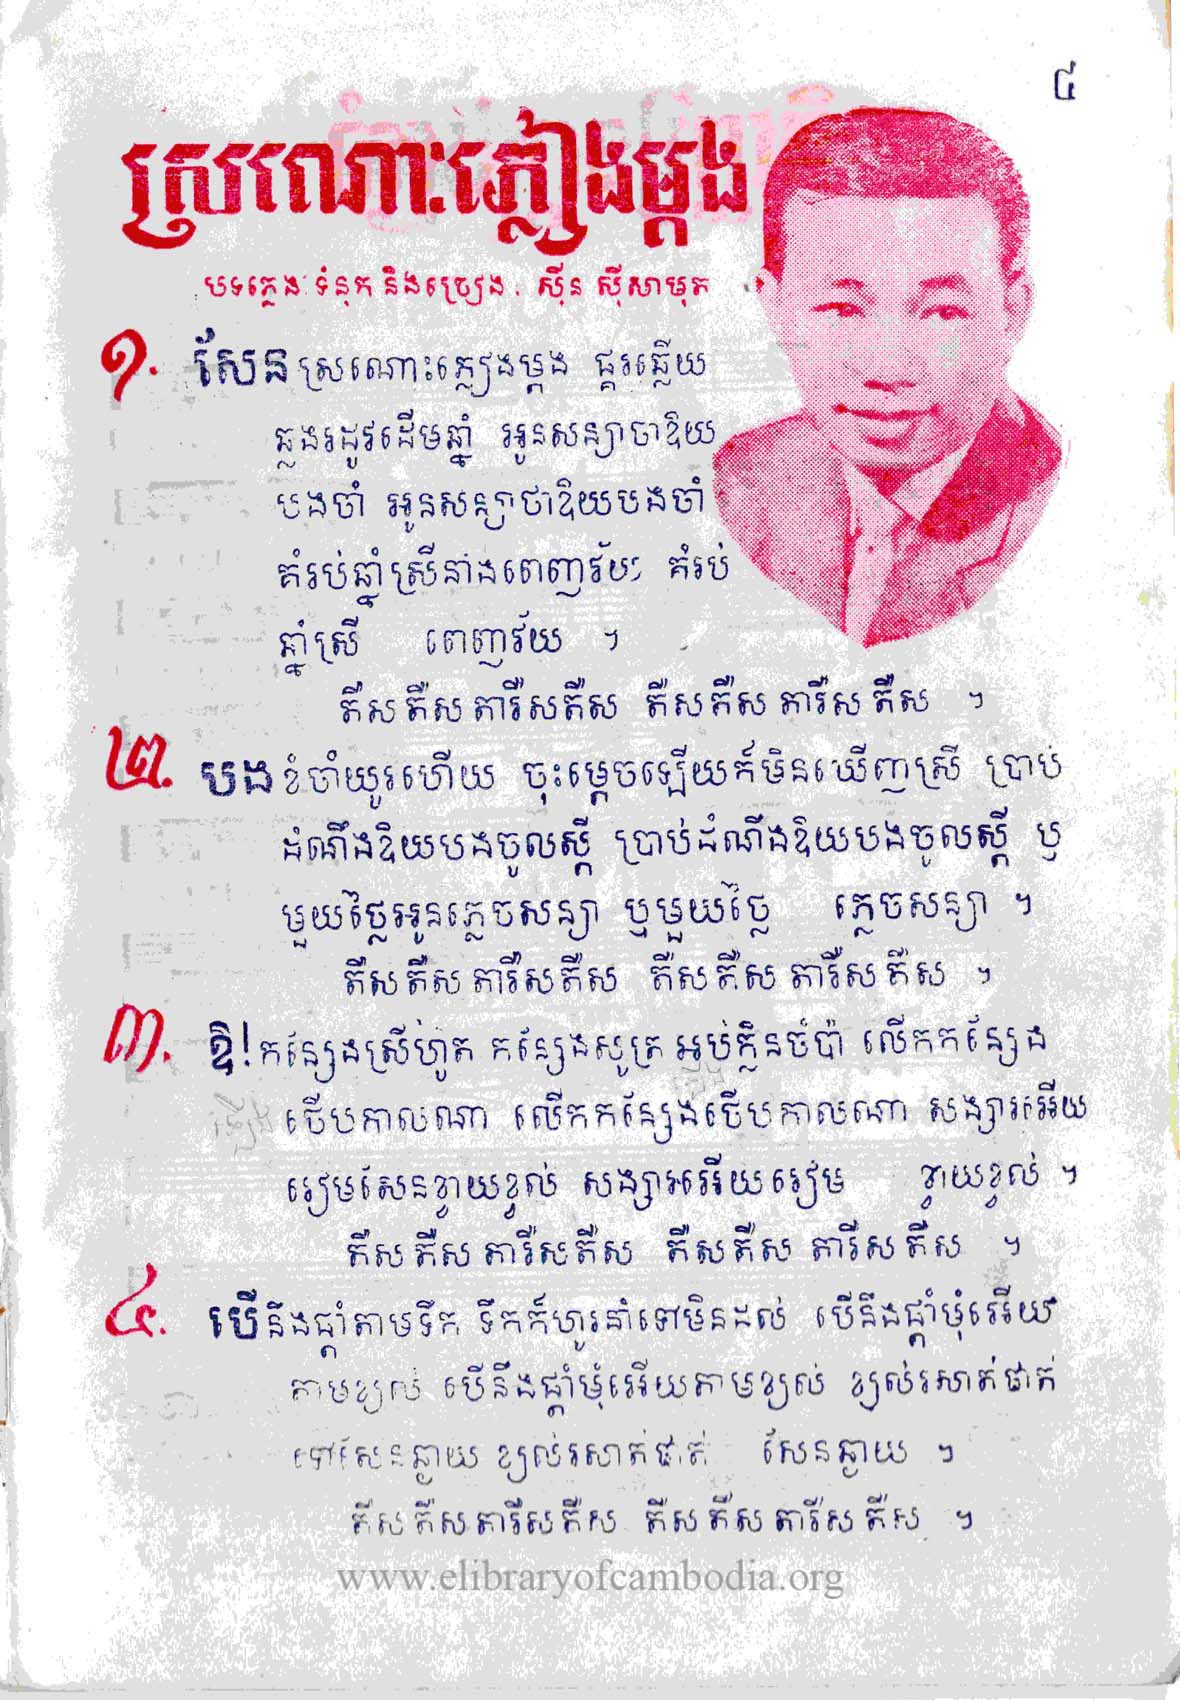 ៤
ស្រណោះភ្លៀងម្ដង
បទភ្លេង ទំនុក និងច្រៀង . ស៊ីន ស៊ីសាមុត
១. សែនស្រណោះភ្លៀងម្ដង ផ្គរឆ្លើយ
ឆ្លងរដូវដើមឆ្នាំ អូនសន្យាថាឱយ
បងចាំ អូនសន្យាថាឱយបងចាំ
គំរប់ឆ្នាំស្រីនាងពេញវ័យ គំរប់
ឆ្នាំស្រី ពេញវ័យ ។
តឺសតឺសតារឺសតឺស តឺសតឺសតារឺសតឺស ។
២. បងខំចាំយូរហើយ ចុះម្ដេចឡើយក៏មិនឃើញស្រី ប្រាប់
ដំណឹងឱយបងចូលស្ដី ប្រាប់ដំណឹងឱយបងចូលស្ដី ឬ
មួយថ្លៃអូនភ្លេចសន្យា ឬមួយថ្លៃ ភ្លេចសន្យា ។
តឺសតឺសតារឺសតឺស តឺសតឺសតារឺសតឺស ។
៣. ឱ!កន្សែងស្រីហ៊ូត កន្សែងសូត្រ អប់ក្លិនចំប៉ា លើកកន្សែង
ថើបកាលណា លើកកន្សែងថើបកាលណា សង្សារអើយ
រៀមសែនខ្វាយខ្វល់ សង្សារអើយរៀម ខ្វាយខ្វល់ ។
តឺសតឺសតារឺសតឺស តឺសតឺសតារឺសតឺស ។
៤. បើនឹងផ្ដាំតាមទឹក ទឹកក៏ហូរនាំទៅមិនដល់ បើនឹងផ្ដាំមុំអើយ
តាមខ្យល់ បើនឹងផ្ដាំមុំអើយតាមខ្យល់ ខ្យល់រសាត់ផាត់
ទៅសែនឆ្ងាយ ខ្យល់រសាត់ផាត់ សែនឆ្ងាយ ។
តឺសតឺសតារឺសតឺស តឺសតឺសតារឺសតឺស ។
www.elibraryofcambodia.org